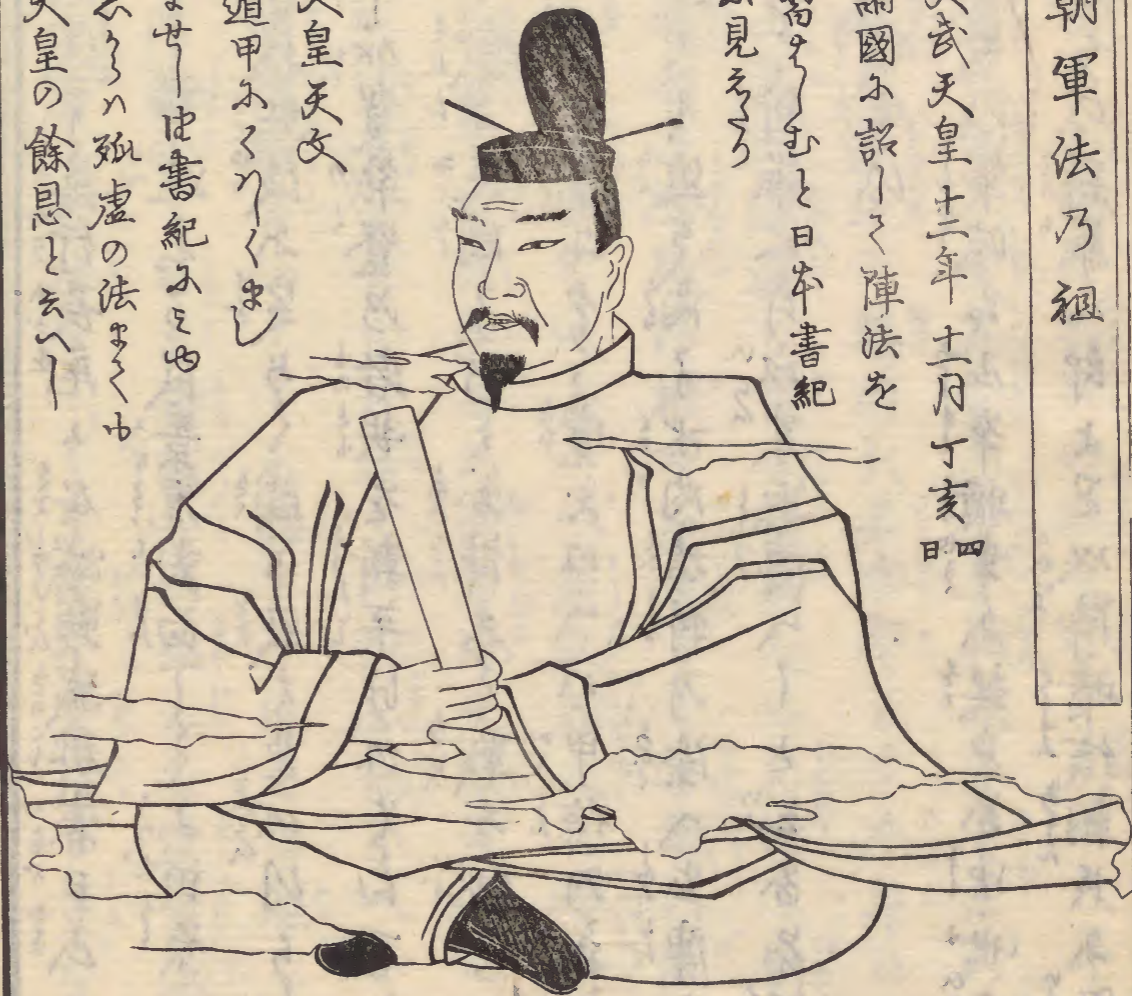 朝軍法乃祖
天武天皇十二年十一月丁亥四日
諸國に詔して陣法を
習はしむと日本書紀
見えたり
天皇天文
遁甲にくハしくまし
ませし由書紀にミゆ
志からハ孤虚の法まても
天皇の餘恩と云へし